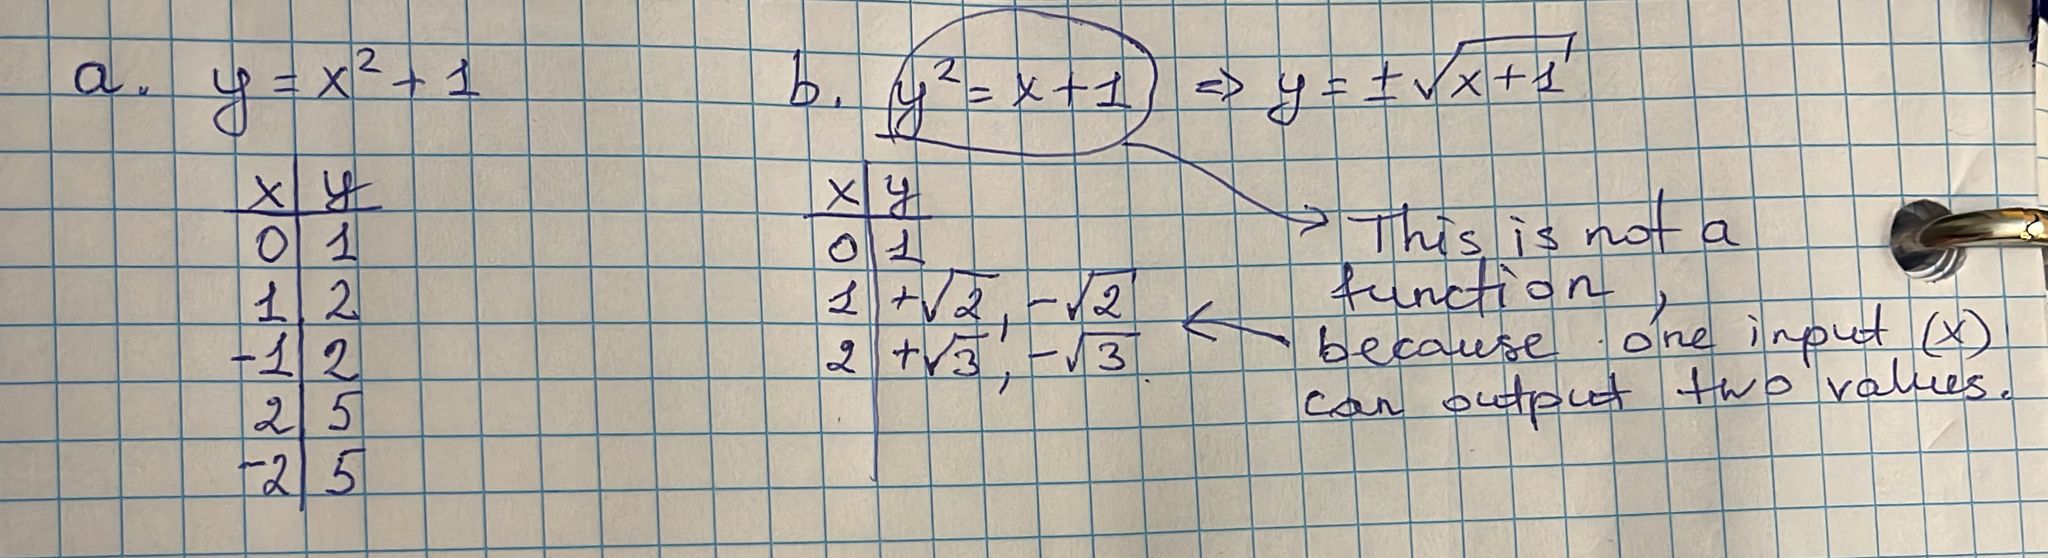 a. y = x² + 1
x | y
0 | 1
1 | 2
-1 | 2
2 | 5
-2 | 5
b. y² = x + 1 ⇒ y = ± √(x + 1)
x | y
0 | 1
1 | +√2, -√2
2 | +√3, -√3
This is not a
function,
because one input (x)
can output two values.